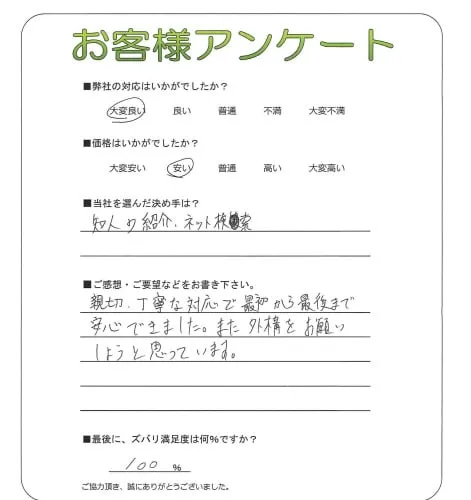 お客様アンケート
■弊社の対応はいかがでしたか？
大変良い 良い 普通 不満 大変不満
■価格はいかがでしたか？
大変安い 安い 普通 高い 大変高い
■当社を選んだ決め手は？
知人の紹介、ネット検索
■ご感想・ご要望などをお書き下さい。
親切、丁寧な対応で最初から最後まで
安心できました。また外構をお願い
しようと思っています。
■最後に、ズバリ満足度は何％ですか？
100 ％
ご協力頂き、誠にありがとうございました。